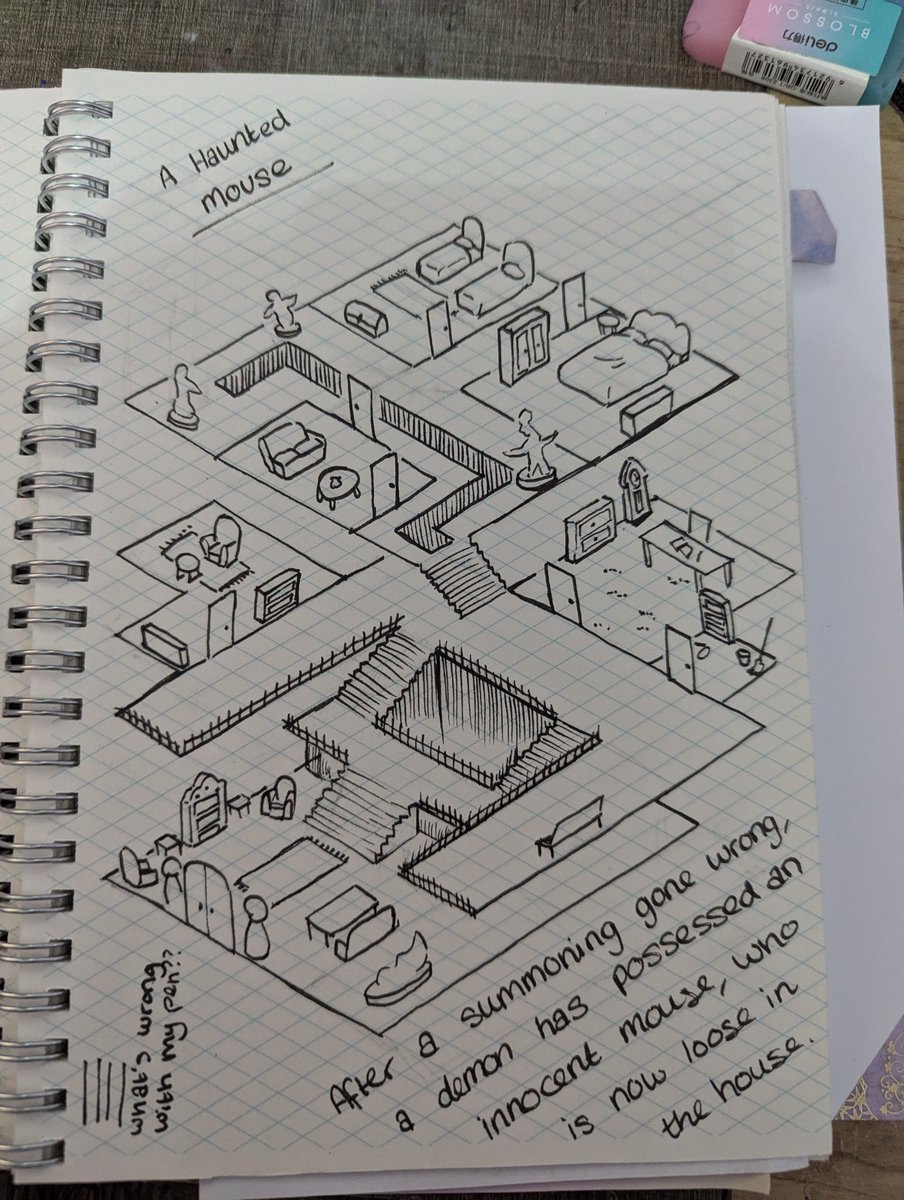 A Haunted
Mouse
After a summoning gone wrong,
a demon has possessed an
innocent mouse, who
is now loose in
the house.
what's wrong
with my pen...
deli得力
BLOSSOM
ALWAYS